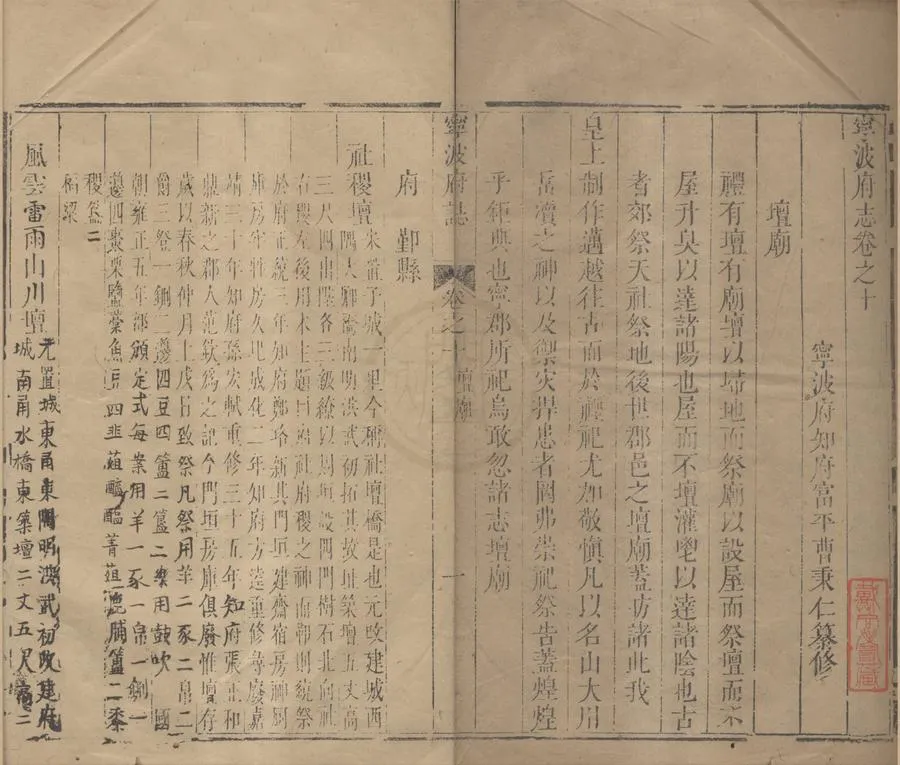 寧波府志卷之十
寧波府知府富平曹秉仁纂修
壇廟
禮有壇有廟壇以墠地而祭廟以設屋而祭壇而不
屋升臭以達諸陽也屋而不壇灌鬯以達諸陰也古
者郊祭天社祭地後世郡邑之壇廟蓋昉諸此我
皇上制作邁越往古而於禮祀尤加敬慎凡以名山大川
岳瀆之神以及禦灾捍患者罔弗崇祀祭告蓋煌煌
乎鉅典也寧郡所祀烏敢忽諸志壇廟
寧波府誌
卷之十
壇廟
一
府 鄞縣
社稷壇宋置子城一里今稱社壇橋是也元改建城西
隅大卿橋南明洪武初拓其故址築壇五丈高
三尺四出陛各三級繚以周垣設四門樹石北向社
右稷左後用木主題曰府社府稷之神而縣則統祭
於府正統三年知府鄭珞新其門垣建齋宿房神厨
庫房宰牲房久地成化二年知府方逵重修尋廢嘉
靖三十年知府孫宏軾重修三十五年知府張正和
鼎新之郡人范欽為之記今門垣房庫俱廢惟壇存
歲以春秋仲月上戊日致祭凡祭用羊二豕二帛二
爵三祭一鉶二籩四豆四簠二簋二樂用鼓吹 國
朝雍正五年部頒定式每案用羊一豕一帛一鉶一
籩四棗栗鹽藁魚豆四韭菹醓醢菁菹鹿脯簠二黍
稷簋二
稻粱
風雲雷雨山川壇元置城東甬東隅明洪武初改建府
城南甬水橋東築壇二丈五尺高二